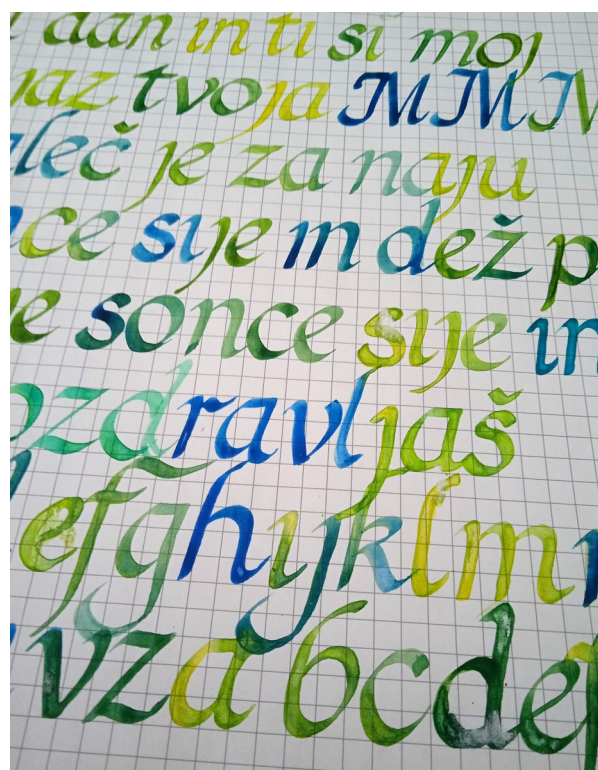 dan in ti si moj
jaz tvoja MMM
aleč je za naju
nce sije in dež p
e sonce sije in
ozdravljaš
efghijklm
vza bcdef